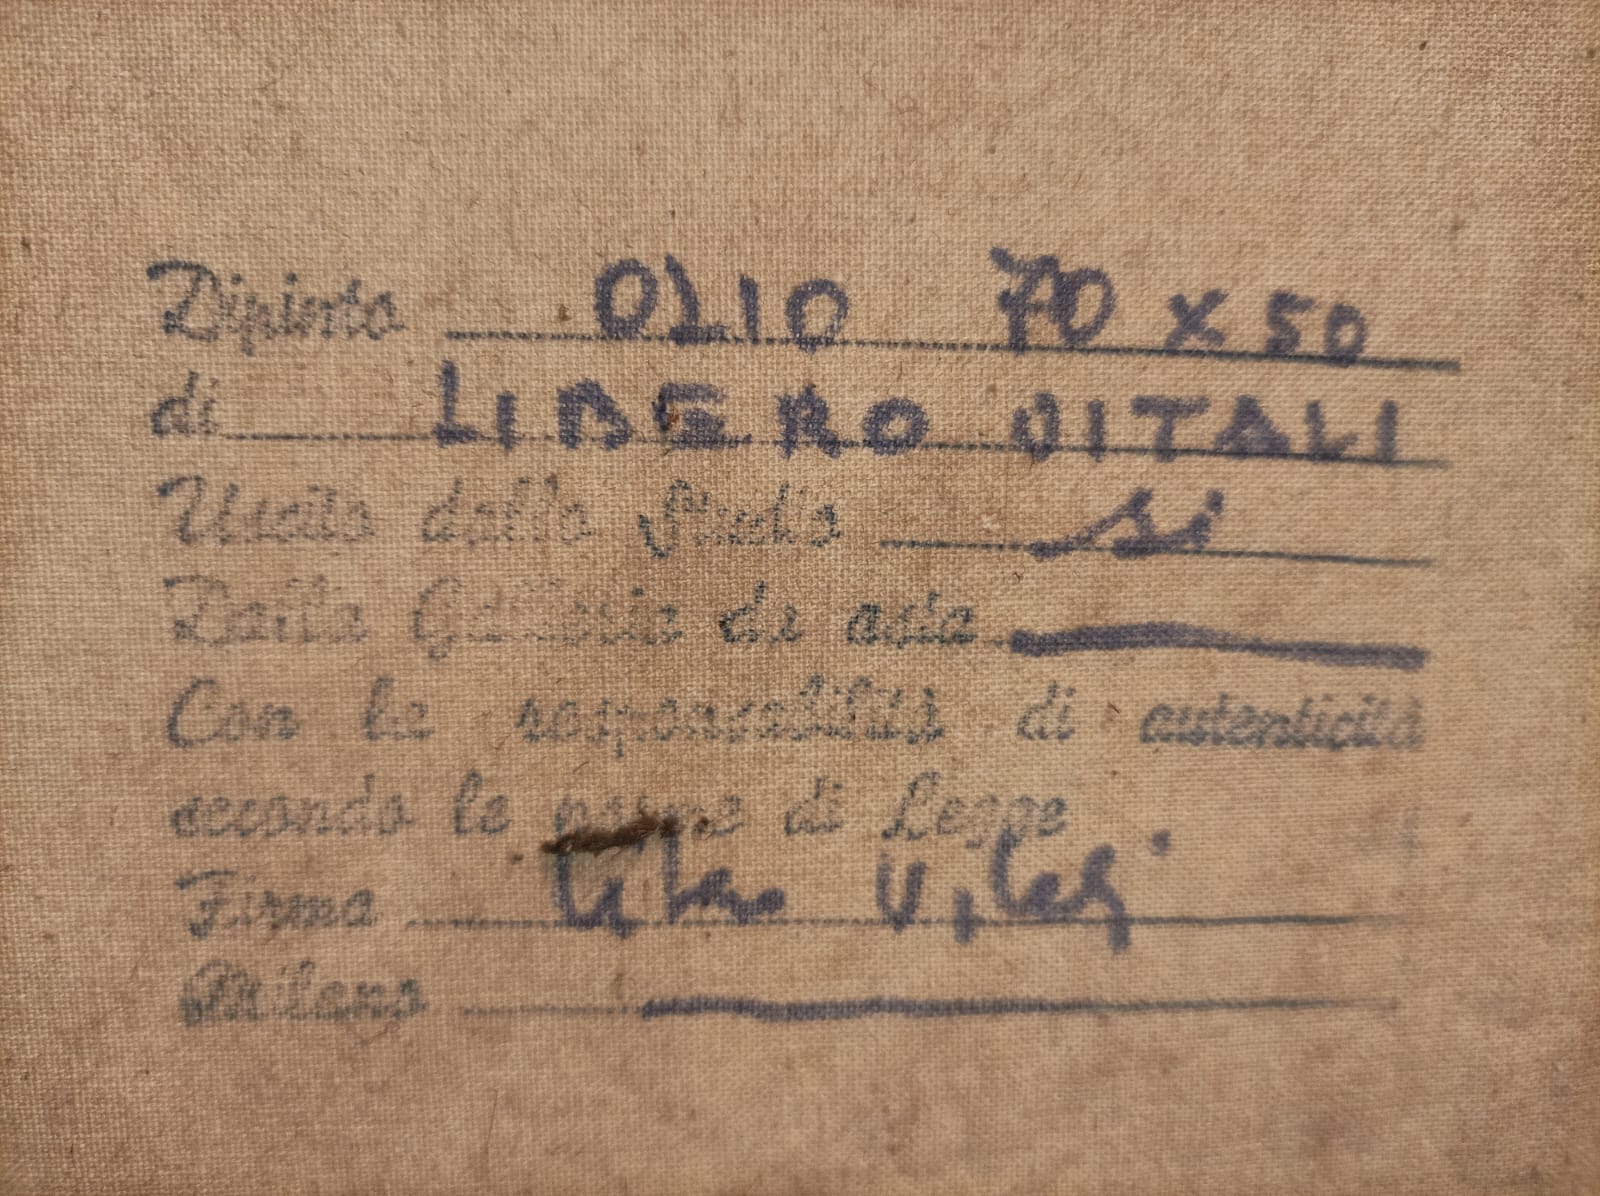 Dipinto OLIO 70 x 50
di LIBERO VITALI
Uscito dallo Studio si
Dalla Galleria di asta
Con le responsabilità di autenticità
secondo le norme di Legge
Firma Libero Vitali
Milano